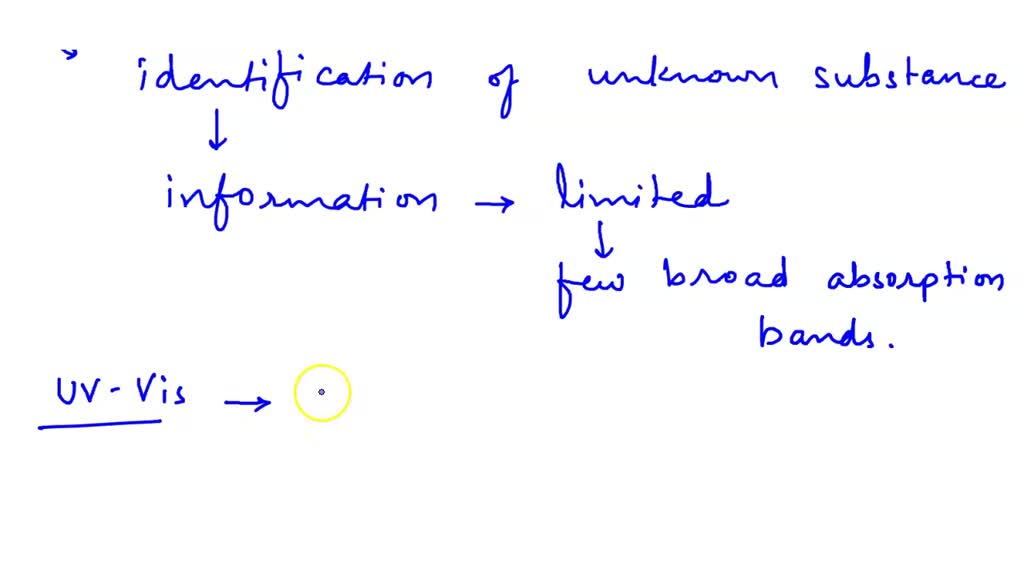 identification of unknown substance
↓
information → limited
↓
few broad absorption
bands.
UV - Vis →